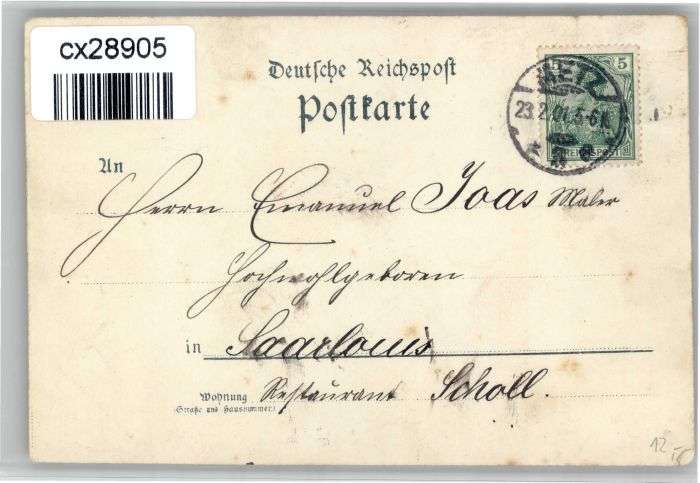 cx28905
Deutsche Reichspost
Postkarte
5
METZ
23.2.01.5-6N.
An
Herrn Emanuel Joas Maler
Hochwohlgeboren
in Saarlouis
Wohnung Restaurant Scholl.
(Straße und Hausnummer)
12